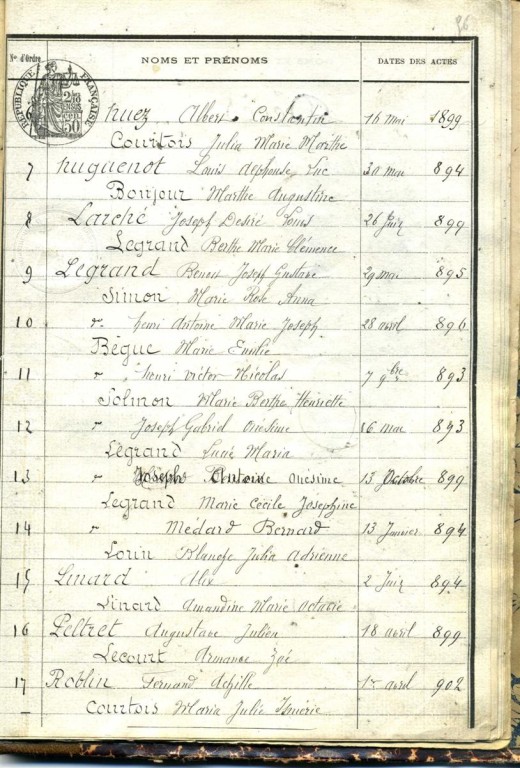 96
Nos d'Ordre NOMS ET PRÉNOMS DATES DES ACTES
RÉPUBLIQUE FRANÇAISE
huez Albert Constantin 16 mai 1899
Courtois Julia Marie Marthe
7 huguenot Louis alphonse Luc 30 mai 894
Bonjour Marthe Augustine
8 Larché Joseph Desiré Louis 26 Juin 899
Legrand Berthe Marie Clémence
9 Legrand Benoit Joseph Gustave 29 mai 895
Simon Marie Rose Anna
10 r henri Antoine Marie Joseph 28 avril 896
Bégue Marie Emilie
11 r henri Victor Nicolas 7 9bre 893
Solmon Marie Berthe Henriette
12 r Joseph Gabriel Onésime 16 mai 893
Legrand Lucie Maria
13 r Joseph Antoine onésime 13 Octobre 899
Legrand Marie Cécile Josephine
14 r Médard Bernard 13 Janvier 894
Lorin Blanche Julia Adrienne
15 Linard Alix 2 Juin 894
Linard Amandine Marie Octavie
16 Peltret Augustave Julien 18 avril 899
Lecourt Armance Zoé
17 Roblin Fernand Achille 1er avril 902
Courtois Maria Julie Ismérie